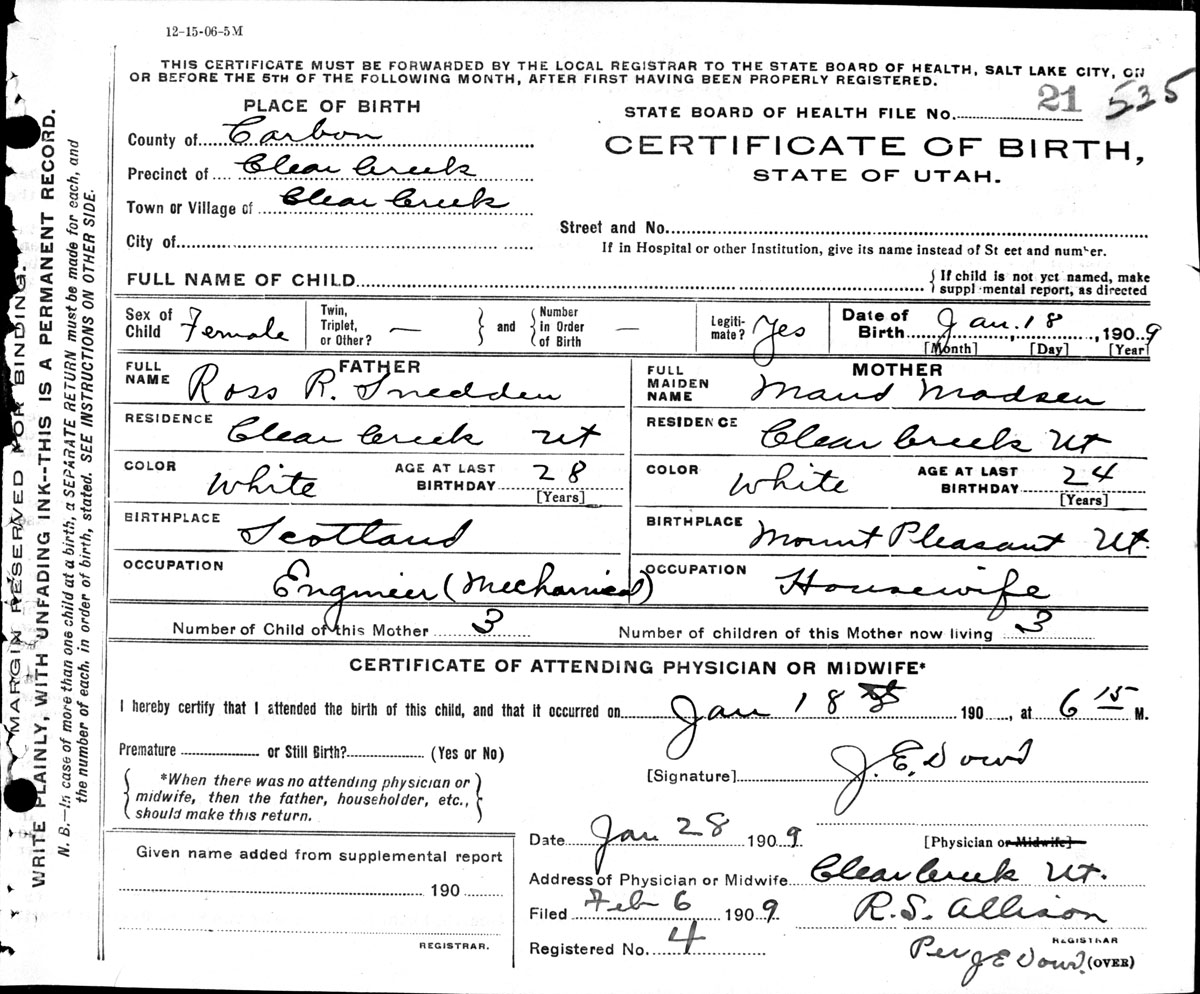 12-15-06-5M
THIS CERTIFICATE MUST BE FORWARDED BY THE LOCAL REGISTRAR TO THE STATE BOARD OF HEALTH, SALT LAKE CITY, ON
OR BEFORE THE 5TH OF THE FOLLOWING MONTH, AFTER FIRST HAVING BEEN PROPERLY REGISTERED.
PLACE OF BIRTH
STATE BOARD OF HEALTH FILE No. 21 535
County of Carbon
CERTIFICATE OF BIRTH,
STATE OF UTAH.
Precinct of Clear Creek
Town or Village of Clear Creek
Street and No.
City of
If in Hospital or other Institution, give its name instead of St eet and number.
FULL NAME OF CHILD
If child is not yet named, make
suppl mental report, as directed
Sex of Child Female
Twin, Triplet, or Other? —
and
Number in Order of Birth —
Legiti-mate? Yes
Date of Birth Jan. 18, 1909
[Month] [Day] [Year]
FATHER
FULL NAME Ross R. Snedden
RESIDENCE Clear Creek Ut
COLOR White
AGE AT LAST BIRTHDAY 28
[Years]
BIRTHPLACE Scotland
OCCUPATION Engineer (Mechanical)
MOTHER
FULL MAIDEN NAME Maud Madsen
RESIDENCE Clear Creek Ut
COLOR White
AGE AT LAST BIRTHDAY 24
[Years]
BIRTHPLACE Mount Pleasant Ut.
OCCUPATION Housewife
Number of Child of this Mother 3
Number of children of this Mother now living 3
CERTIFICATE OF ATTENDING PHYSICIAN OR MIDWIFE*
I hereby certify that I attended the birth of this child, and that it occurred on Jan 18 190 , at 6 15 M.
Premature or Still Birth? (Yes or No)
[Signature] J. E. Dowd
*When there was no attending physician or
midwife, then the father, householder, etc.,
should make this return.
Date Jan 28 1909
[Physician or Midwife]
Given name added from supplemental report
190
REGISTRAR.
Address of Physician or Midwife Clear Creek Ut.
Filed Feb 6 1909
R. S. Allison
REGISTRAR
Registered No. 4
Per J E Dowd.
(OVER)
MARGIN RESERVED FOR BINDING.
WRITE PLAINLY, WITH UNFADING INK--THIS IS A PERMANENT RECORD.
N. B.—In case of more than one child at a birth, a SEPARATE RETURN must be made for each, and
the number of each, in order of birth, stated. SEE INSTRUCTIONS ON OTHER SIDE.